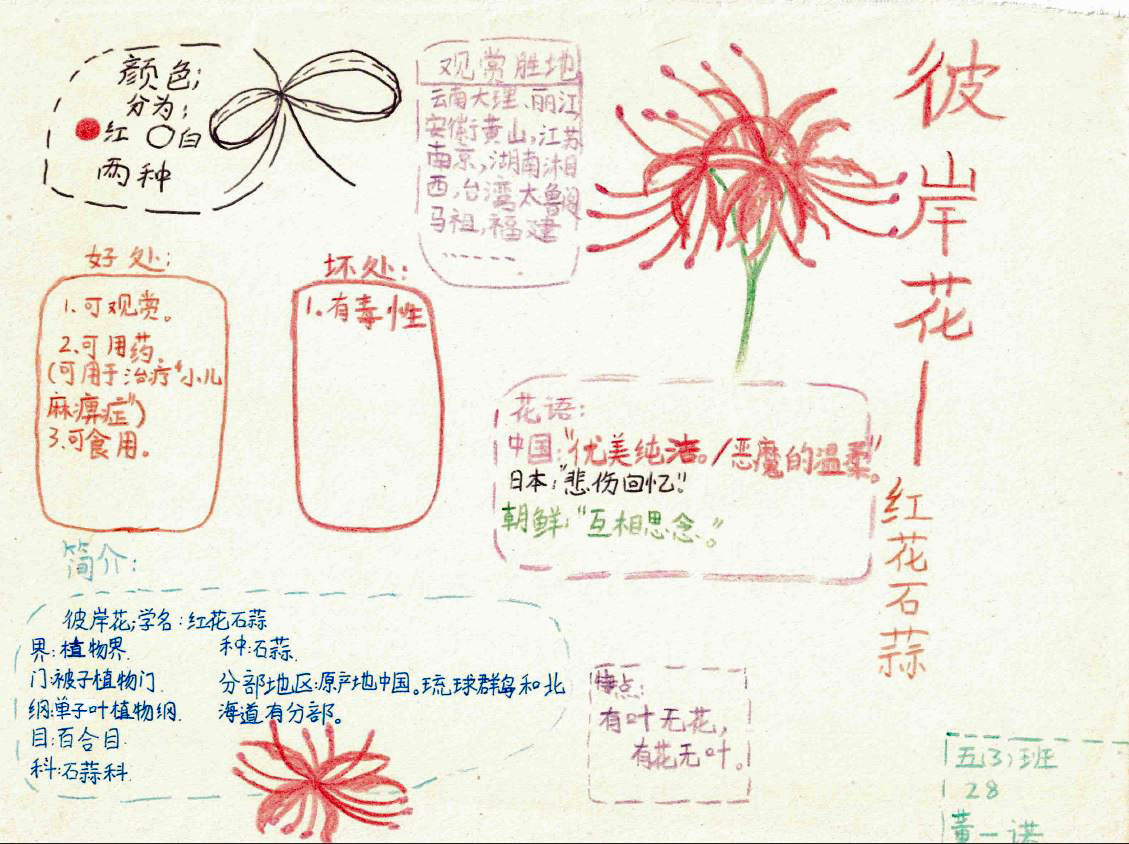 彼岸花——红花石蒜
颜色:
分为:
红 白
两种
观赏胜地
云南大理、丽江,
安徽黄山,江苏
南京,湖南湘
西,台湾太鲁阁
马祖,福建
......
好处:
1.可观赏。
2.可用药.
(可用于治疗“小儿
麻痹症”)
3.可食用。
坏处:
1.有毒性
花语:
中国:“优美纯洁。/恶魔的温柔”。
日本:“悲伤回忆”!
朝鲜:“互相思念。”
简介:
彼岸花;学名:红花石蒜
界:植物界.
门:被子植物门.
纲:单子叶植物纲.
目:百合目.
科:石蒜科.
种:石蒜.
分部地区:原产地中国。琉球群岛和北
海道有分部。
特点:
有叶无花,
有花无叶。
五(3)班
28
董一诺